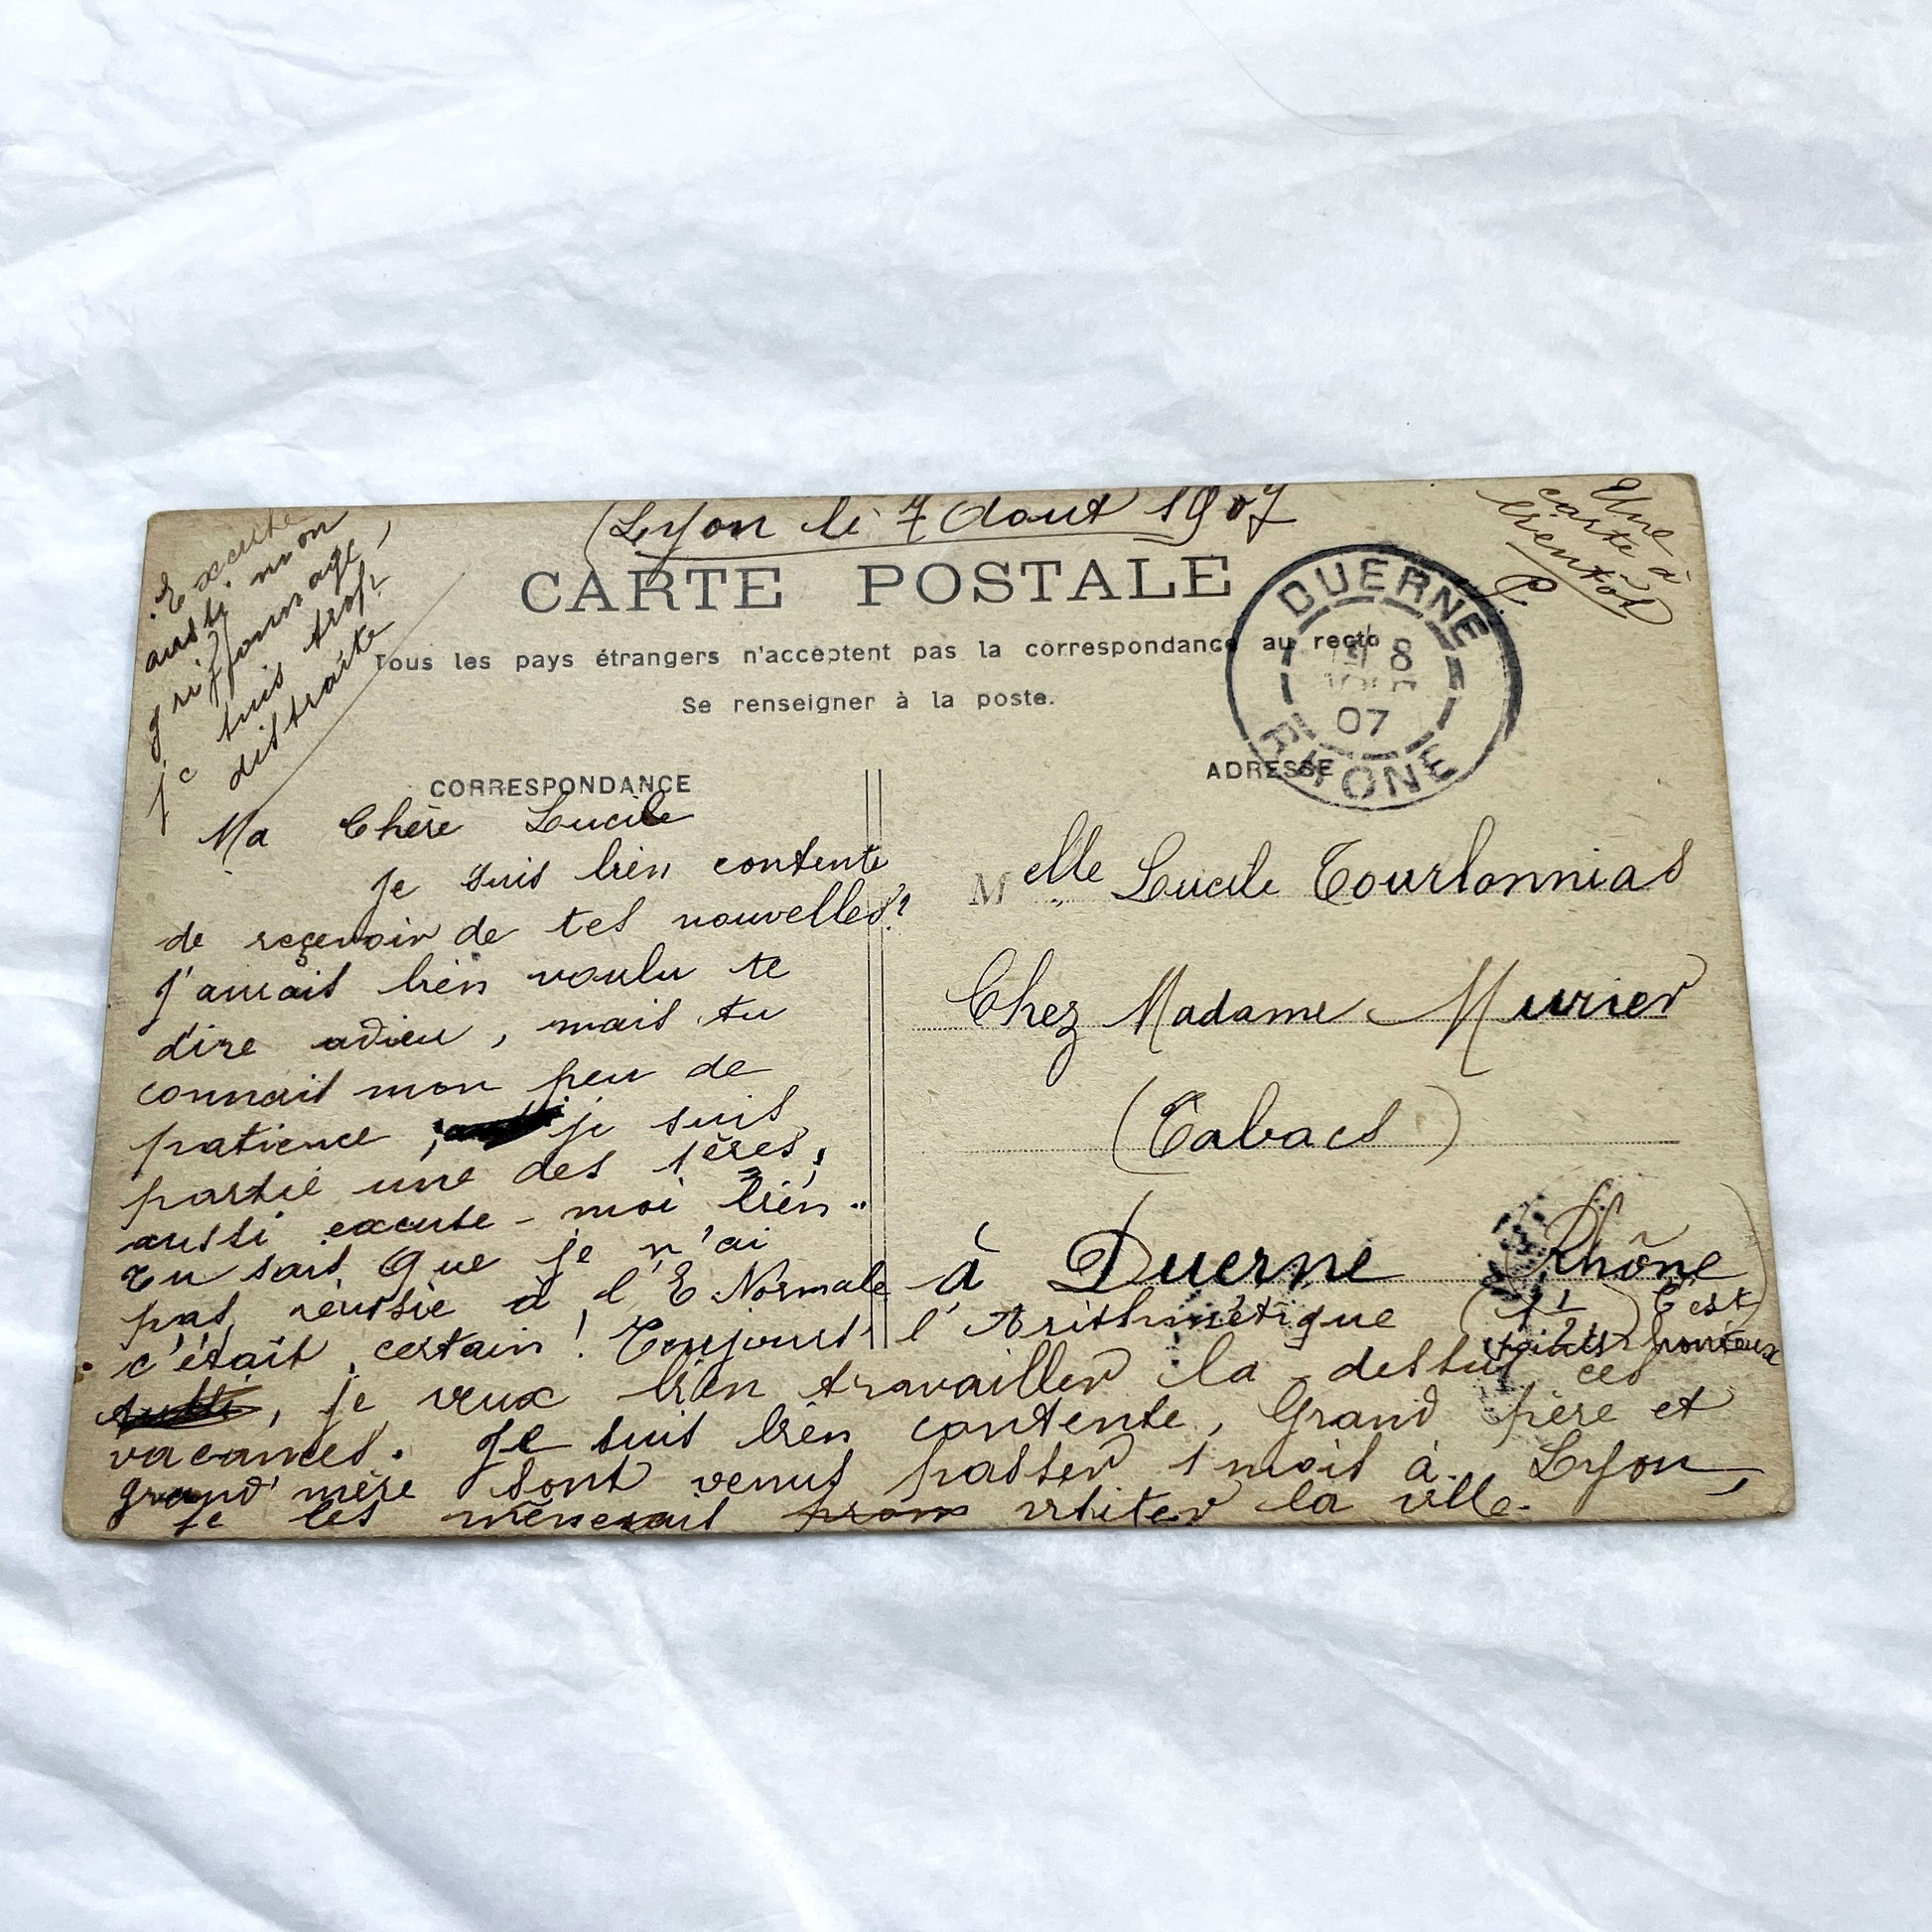 Lyon le 7 Aout 1907
Une
carte à
bientôt
Excuse
aussi mon
griffonnage,
je suis trop
distraite
CARTE POSTALE
Tous les pays étrangers n'acceptent pas la correspondance au recto
Se renseigner à la poste.
DUERNE
8
07
RHONE
CORRESPONDANCE
Ma Chère Lucile
Je suis bien contente
de reçevoir de tes nouvelles?
J'aurais bien voulu te
dire adieu, mais tu
connait mon peu de
patience, je suis
partie une des 1ères,
aussi excuse-moi bien..
Tu sais que je n'ai
pas réussie à l'E Normale
c'était certain! Toujours l'Arithmétique
(1 1/2 points) C'est honteux
, je veux bien travailler la dessus ces
vacances. Je suis bien contente, Grand père et
grand'mère sont venus passer 1 mois à Lyon,
je les mènerait visiter la ville.
ADRESSE
Melle Lucile Tourlonnias
Chez Madame Murier
(Tabacs)
à Duerne (Rhône)